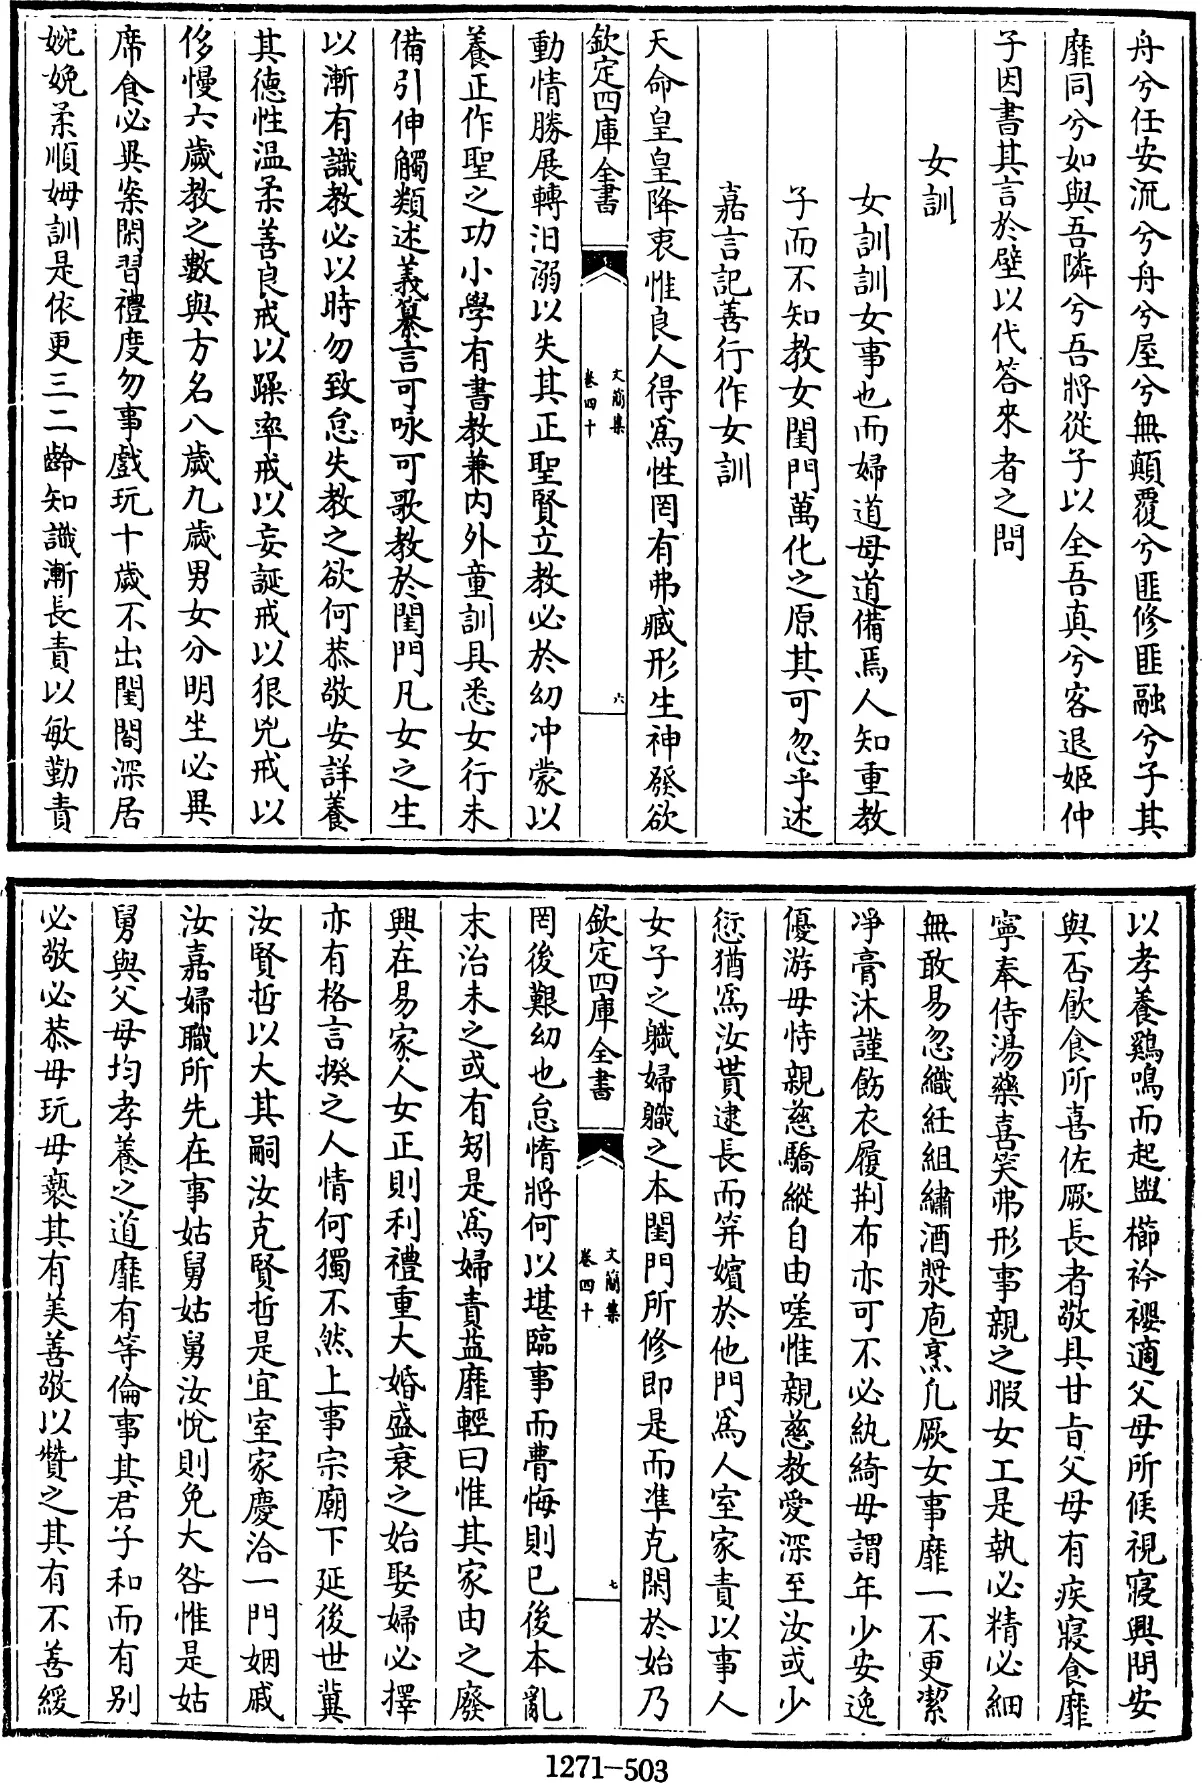 舟兮任安流兮舟兮屋兮無顛覆兮匪修匪融兮子其
靡同兮如與吾隣兮吾將從子以全吾真兮客退姬仲
子因書其言於壁以代答來者之問
女訓
女訓訓女事也而婦道母道備焉人知重教
子而不知教女閨門萬化之原其可忽乎述
嘉言記善行作女訓
天命皇皇降衷惟良人得爲性罔有弗臧形生神發欲
欽定四庫全書
文簡集
卷四十
六
動情勝展轉汨溺以失其正聖賢立教必於幼冲蒙以
養正作聖之功小學有書教兼内外童訓具悉女行未
備引伸觸類述義纂言可咏可歌教於閨門凡女之生
以漸有識教必以時勿致怠失教之欲何恭敬安詳養
其德性温柔善良戒以躁率戒以妄誕戒以狠兇戒以
侈慢六歲教之數與方名八歲九歲男女分明坐必異
席食必異案閑習禮度勿事戲玩十歲不出閨閤深居
婉娩柔順姆訓是依更三二齡知識漸長責以敏勤責
以孝養鷄鳴而起盥櫛衿纓適父母所候視寢興問安
與否飲食所喜佐厥長者敬具甘旨父母有疾寢食靡
寧奉侍湯藥喜笑弗形事親之暇女工是執必精必細
無敢易忽織紝組繡酒漿庖烹凡厥女事靡一不更潔
净膏沐謹飭衣履荆布亦可不必紈綺毋謂年少安逸
優游毋恃親慈驕縱自由嗟惟親慈教愛深至汝或少
愆猶爲汝貰逮長而笄嬪於他門爲人室家責以事人
女子之職婦職之本閨門所修即是而準克閑於始乃
欽定四庫全書
文簡集
卷四十
七
罔後艱幼也怠惰將何以堪臨事而瞢悔則已後本亂
末治未之或有矧是爲婦責益靡輕曰惟其家由之廢
興在易家人女正則利禮重大婚盛衰之始娶婦必擇
亦有格言揆之人情何獨不然上事宗廟下延後世冀
汝賢哲以大其嗣汝克賢哲是宜室家慶洽一門姻戚
汝嘉婦職所先在事姑舅姑舅汝悅則免大咎惟是姑
舅與父母均孝養之道靡有等倫事其君子和而有别
必敬必恭毋玩毋褻其有美善敬以贊之其有不善緩
1271-503